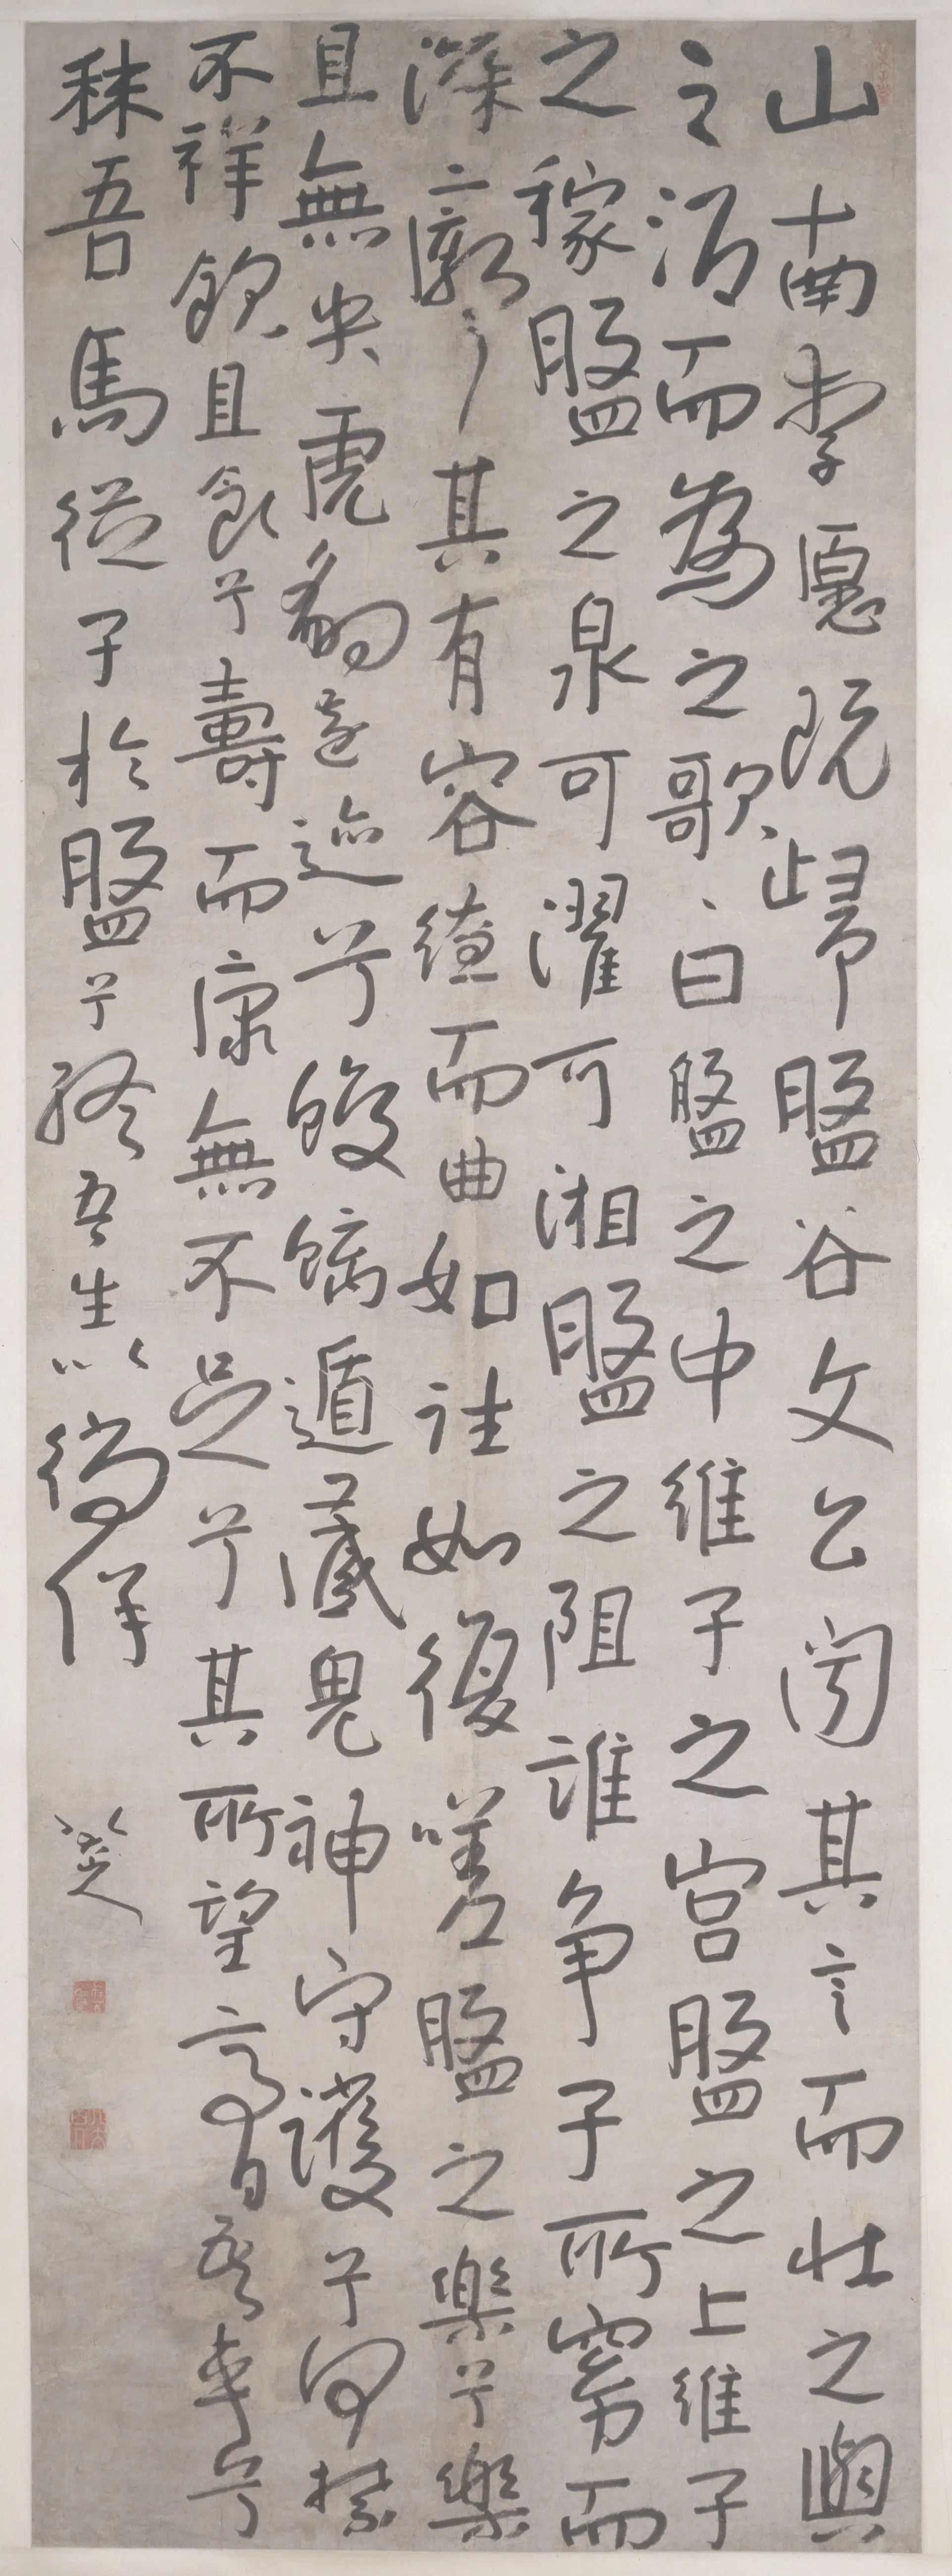 山南李愿既歸盤谷文公聞其言而壯之與
之酒而為之歌〻曰盤之中維子之宮盤之上維子
之稼盤之泉可濯可湘盤之阻誰爭子所窈而
深〻廓〻其有容繚而曲如往如復嗟盤之樂兮樂
且無央虎豹遠迹兮蛟螭遁藏鬼神守護兮呵禁
不祥飲且食兮壽而康無不足兮其所望膏吾車兮
秣吾馬從子於盤兮終吾生以徜徉
八大山人